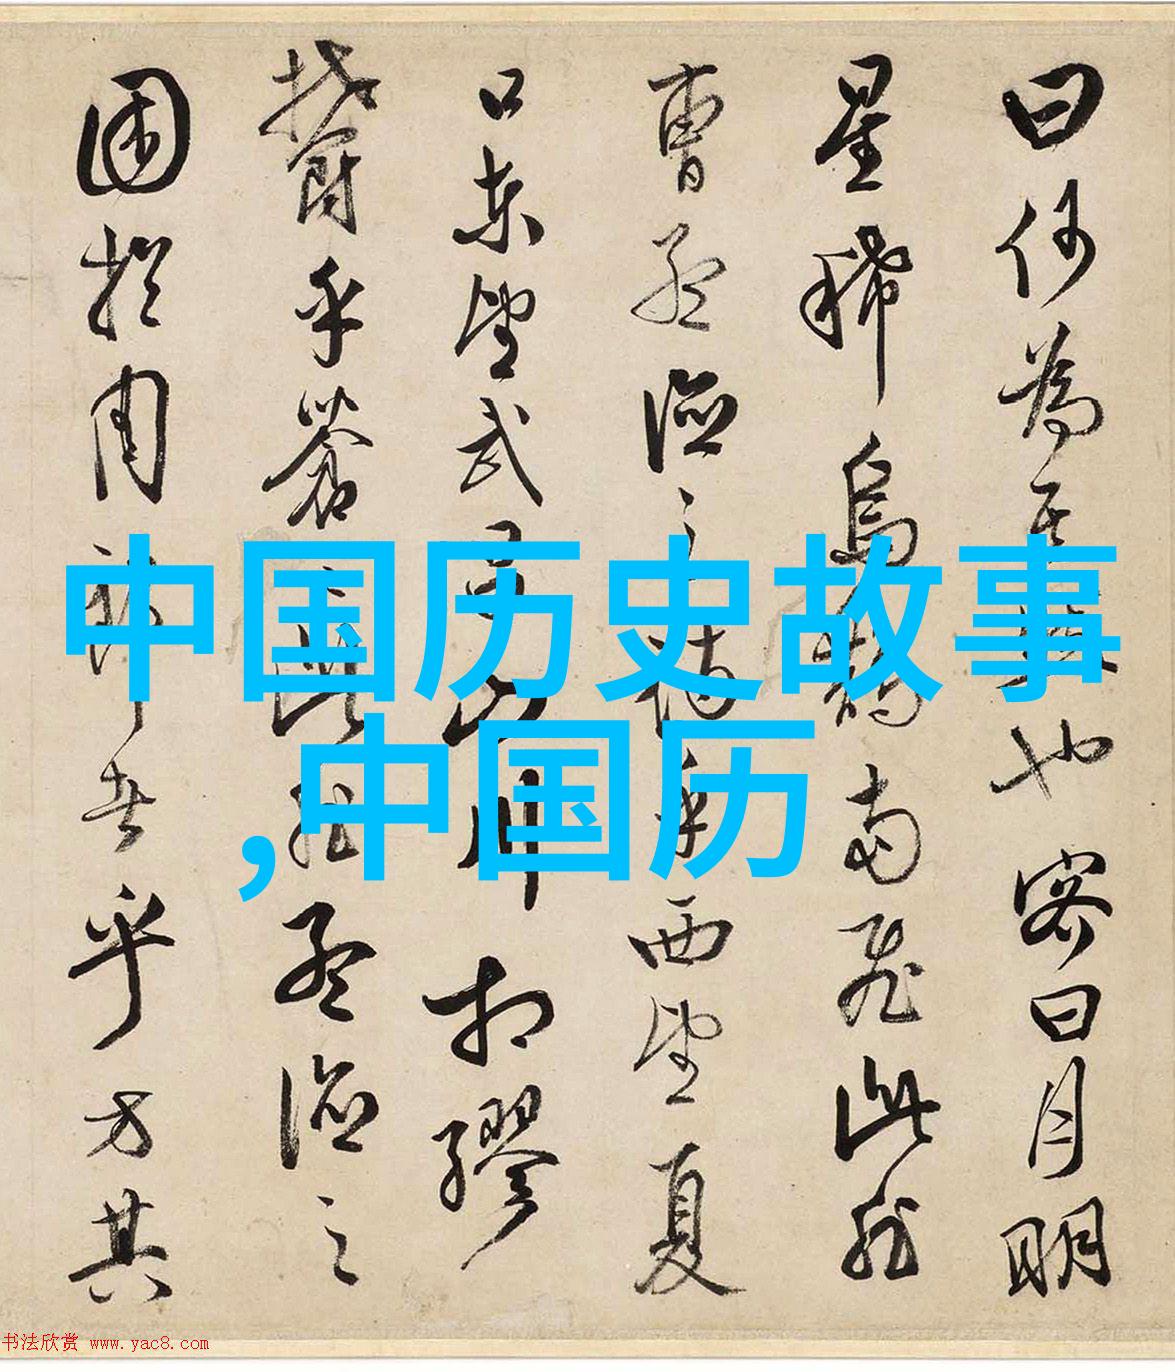 曰何為其然也客曰月明
星稀烏鵲南飛此非
曹孟德之詩乎西望夏
口東望武昌山川相繆
鬱乎蒼〻此非孟德之
困於周郎者乎方其
中国历史故事
,中国历
书法欣赏 www.yac8.com